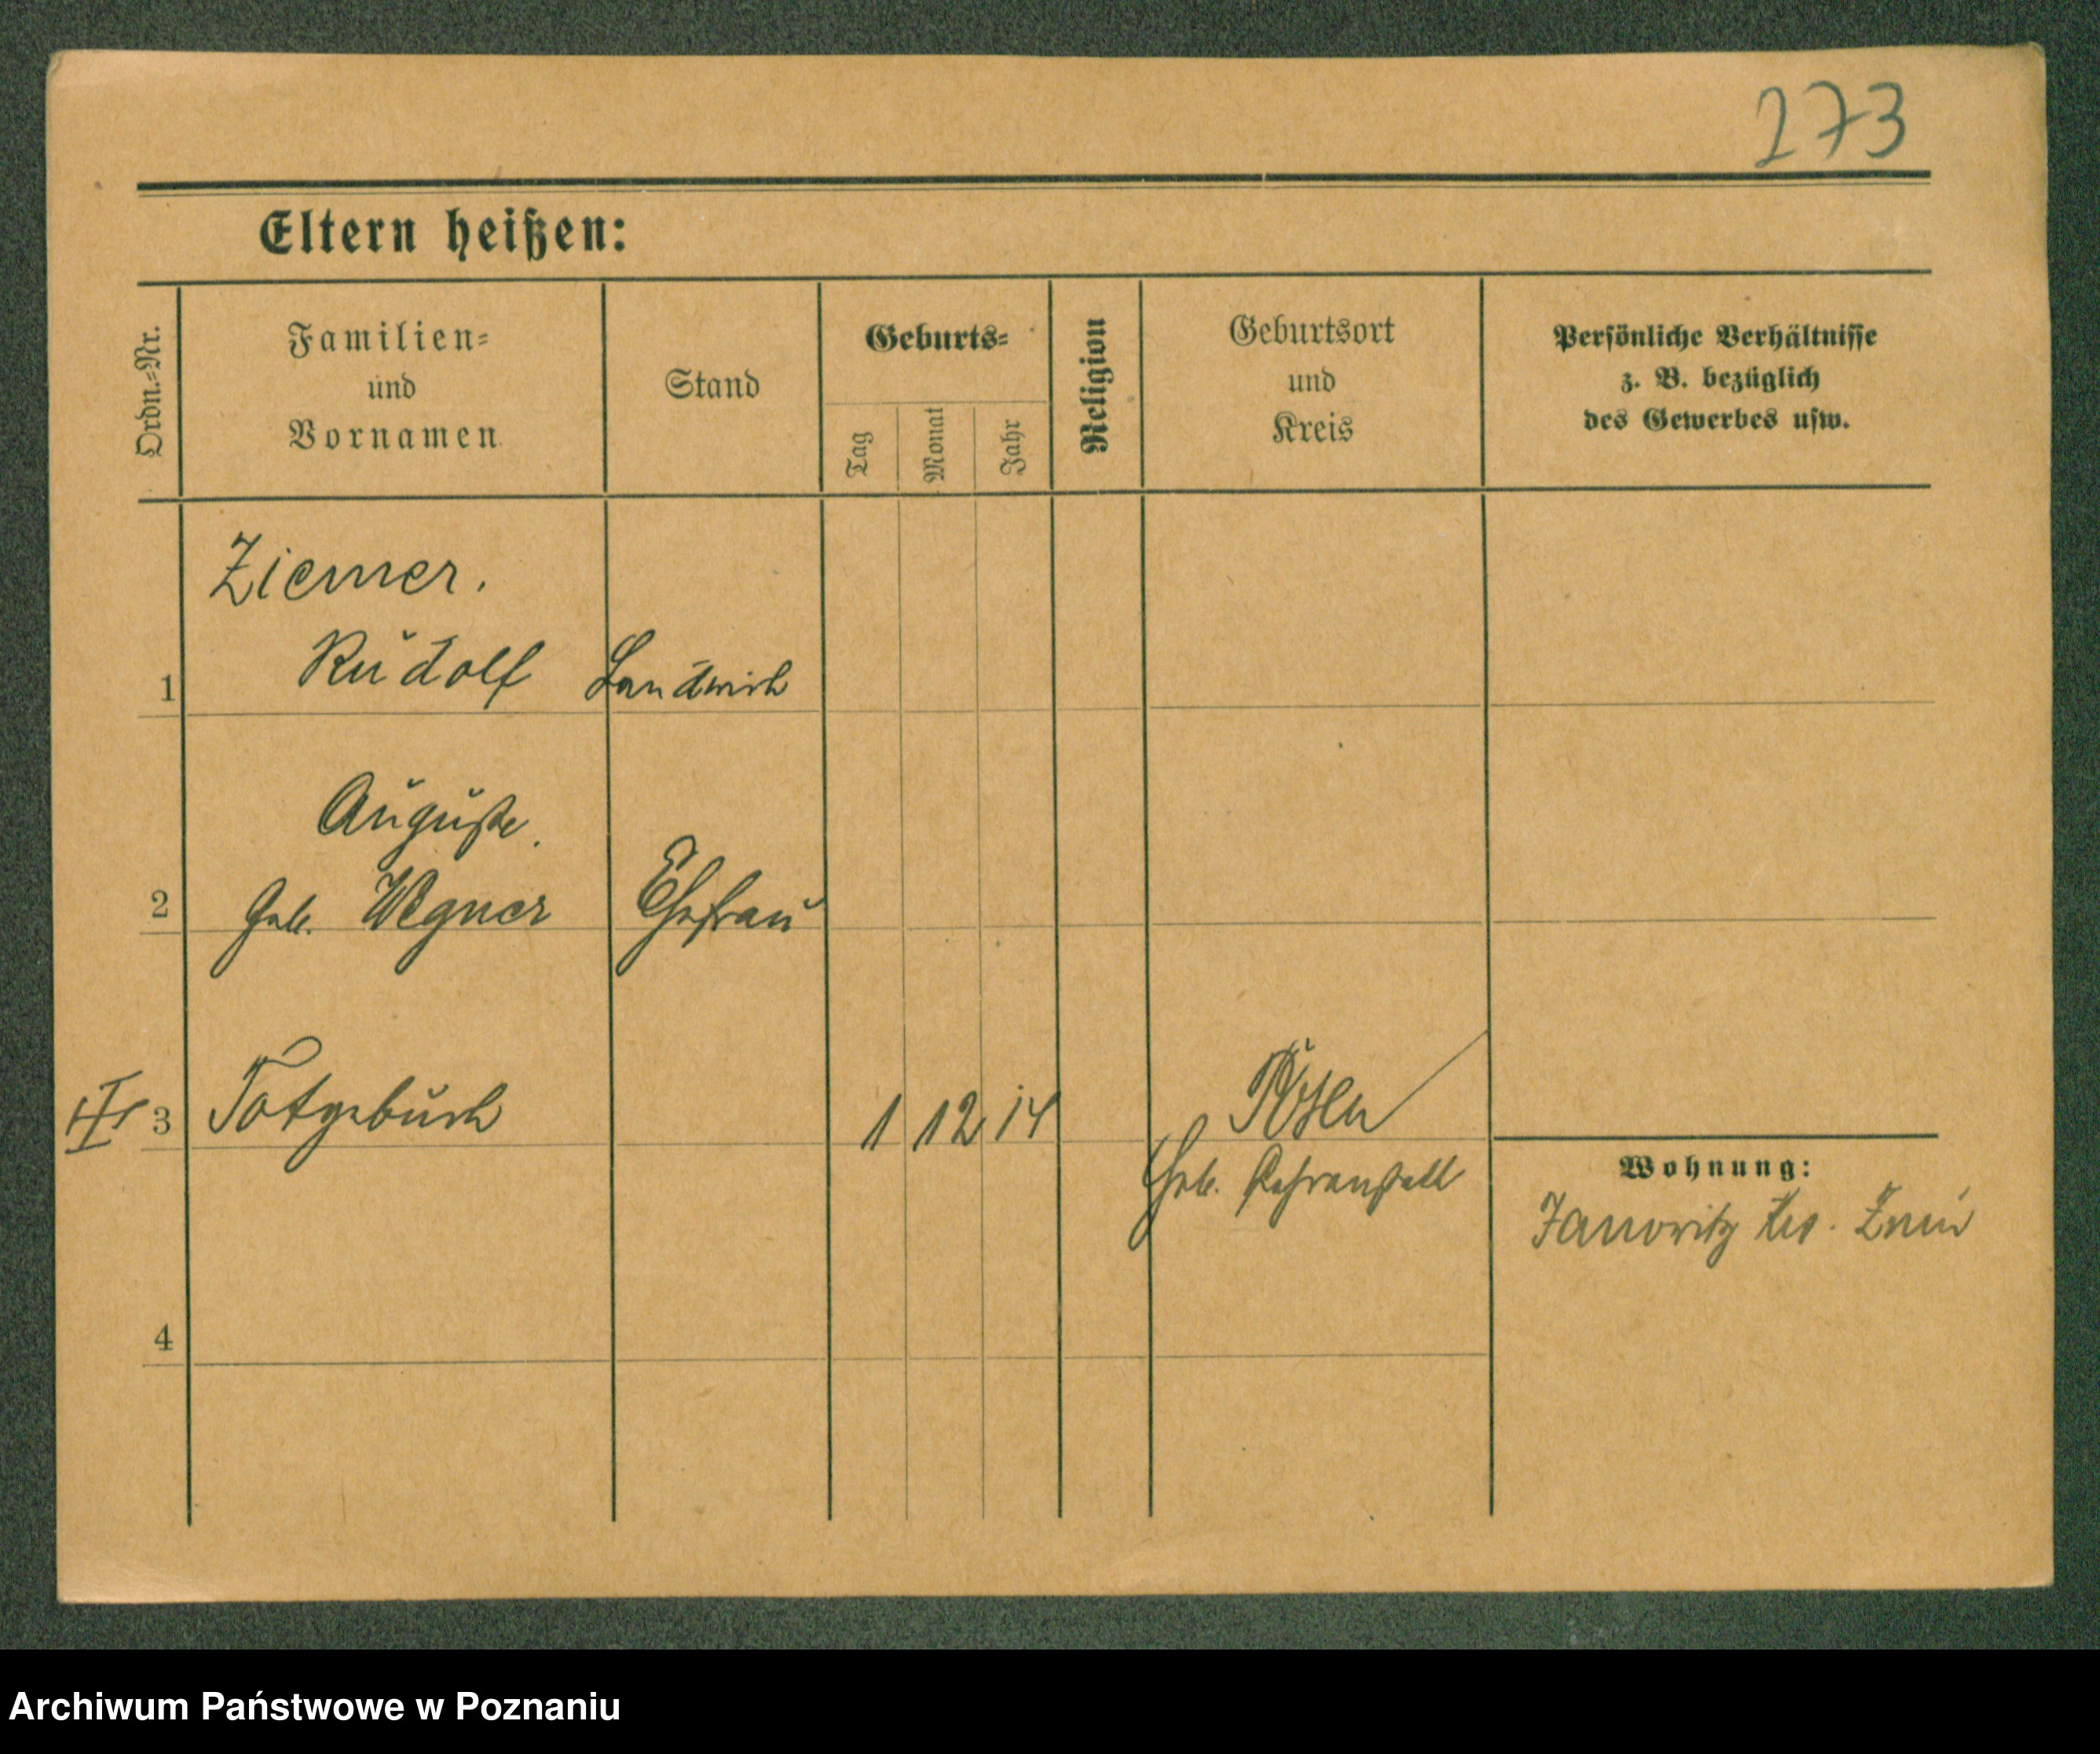 273
Eltern heißen:
Ordn.-Nr.
Familien-
und
Vornamen
Stand
Geburts-
Tag
Monat
Jahr
Religion
Geburtsort
und
Kreis
Persönliche Verhältnisse
z. B. bezüglich
des Gewerbes usw.
Ziemer.
1 Rudolf Landwirt
Auguste.
2 geb. Wegner Ehefrau
3 Totgeburt 1 12 14 Posen
Geb. Lehranstalt
Wohnung:
Janowitz Krs. Znin
4
Archiwum Państwowe w Poznaniu